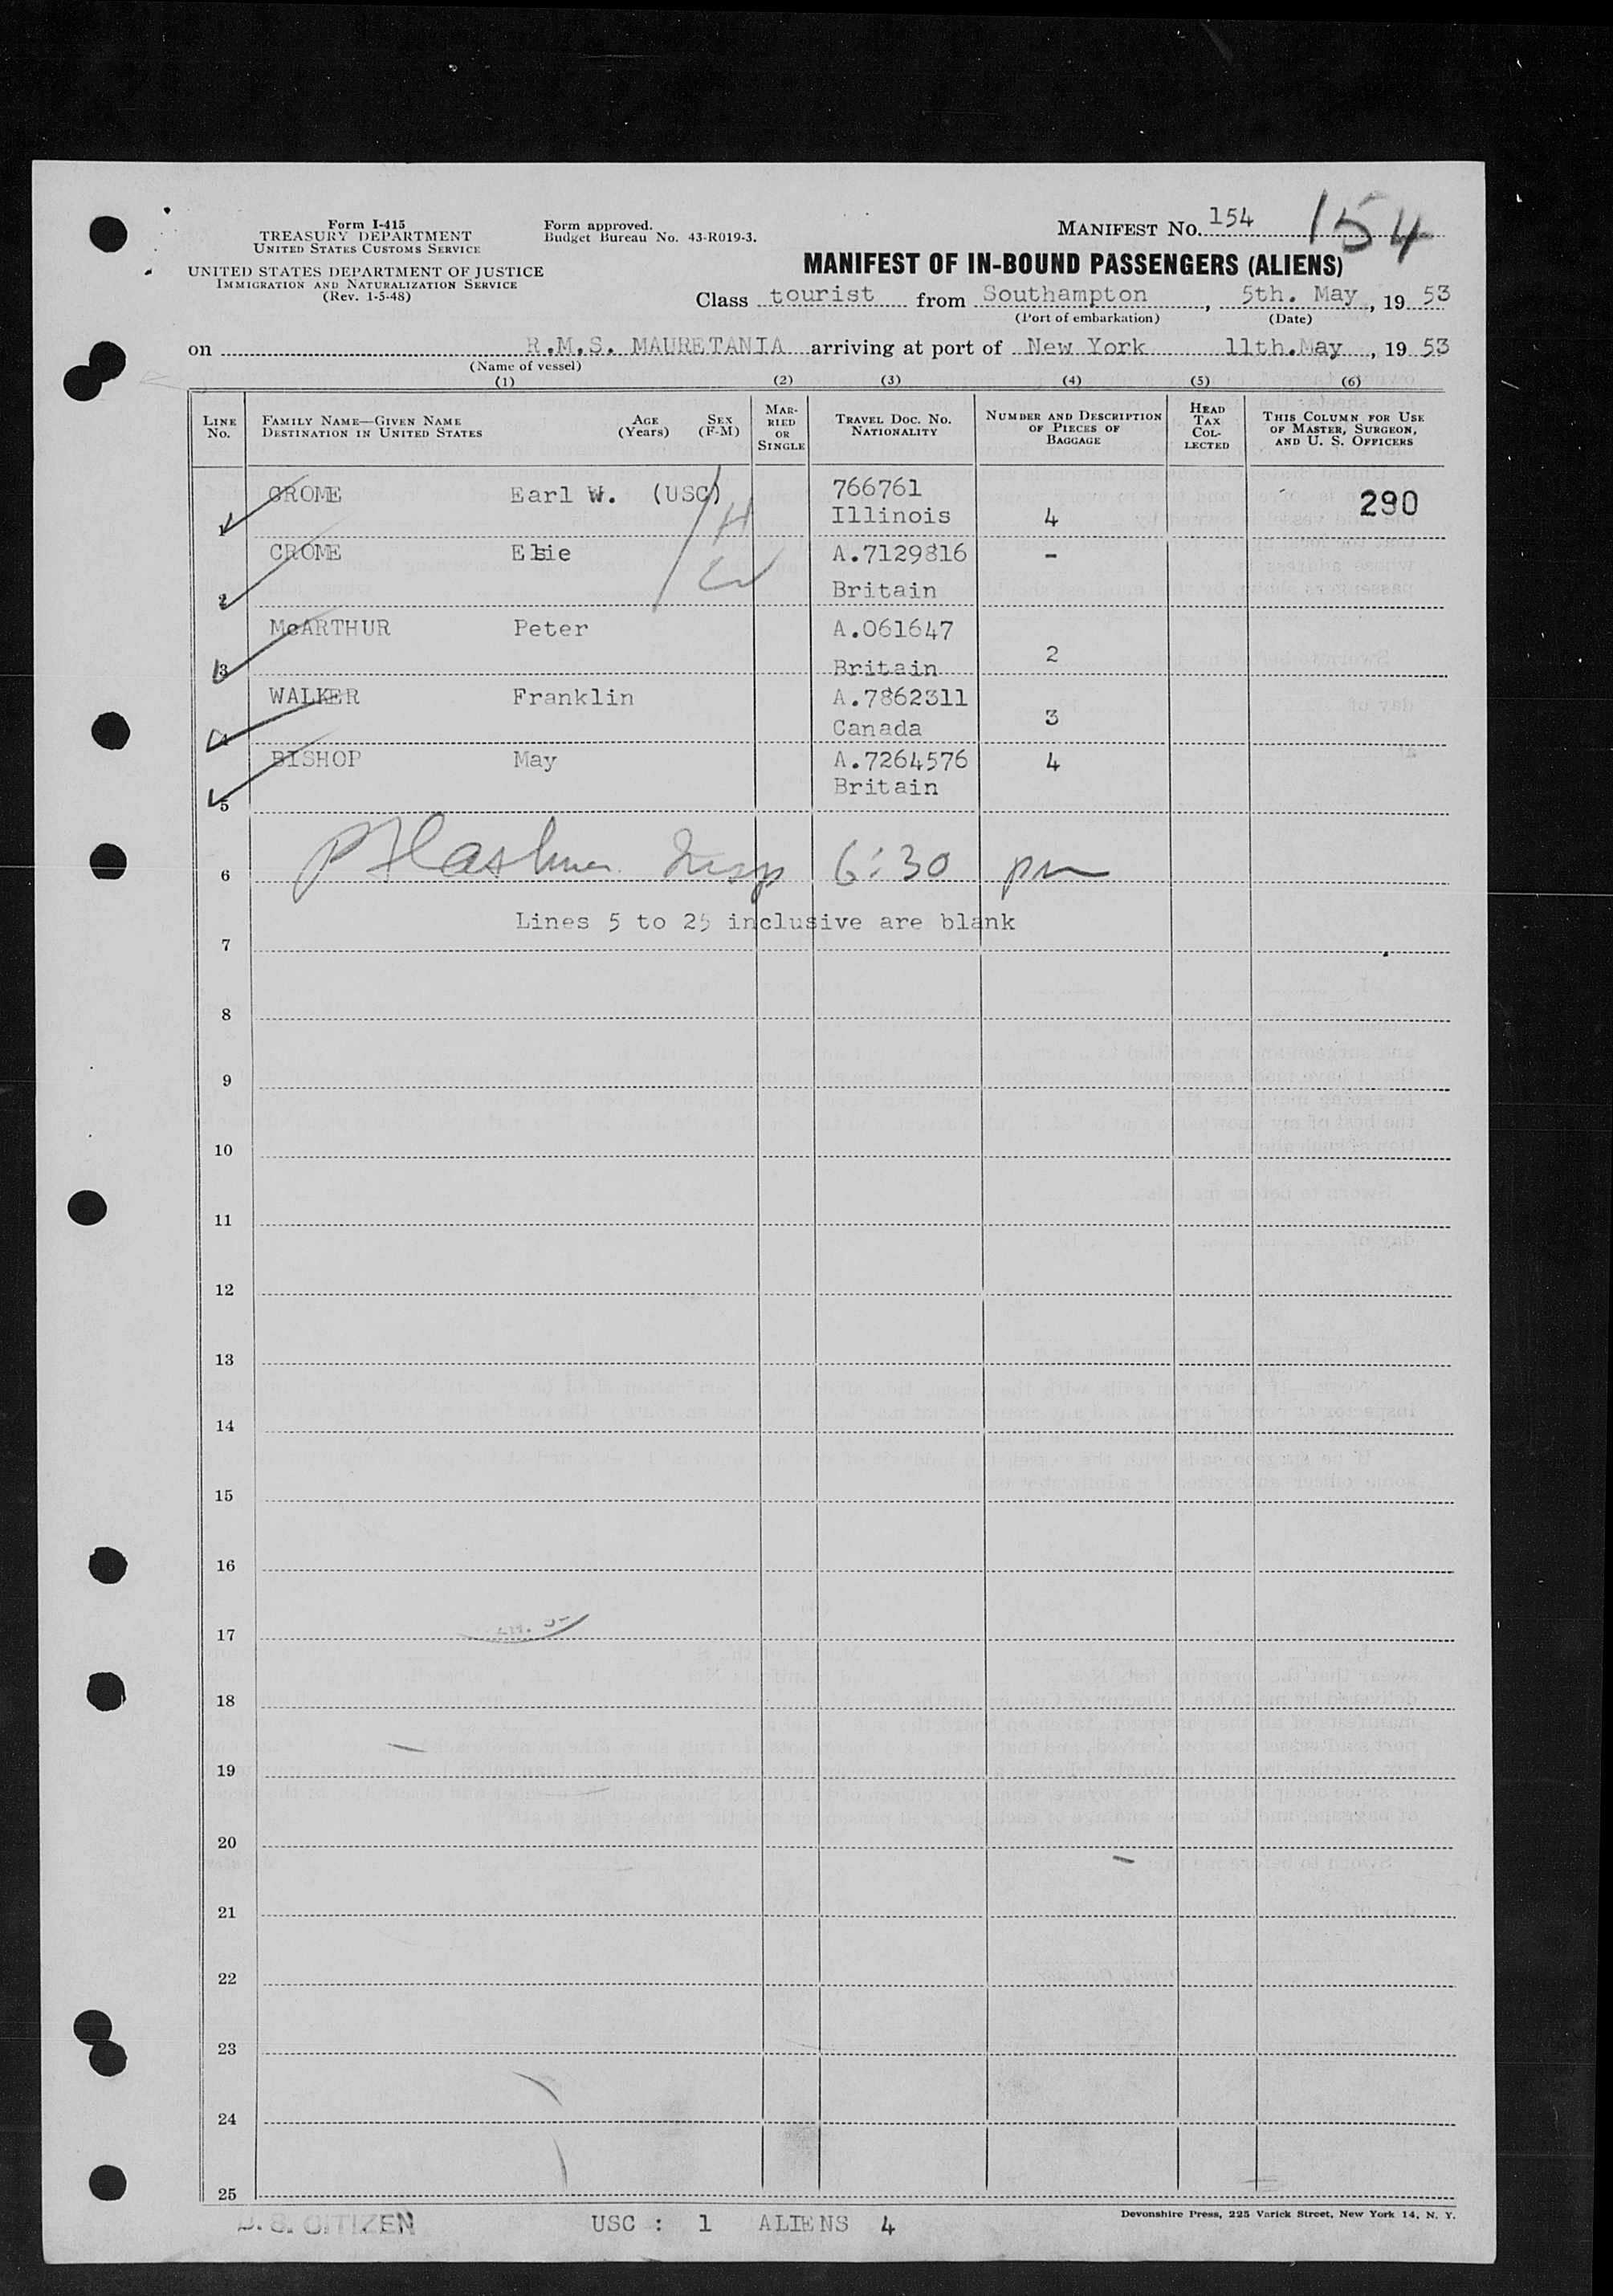 Form I-415
TREASURY DEPARTMENT
UNITED STATES CUSTOMS SERVICE
UNITED STATES DEPARTMENT OF JUSTICE
IMMIGRATION AND NATURALIZATION SERVICE
(Rev. 1-5-48)
Form approved.
Budget Bureau No. 43-R019-3.
MANIFEST NO. 154 154
MANIFEST OF IN-BOUND PASSENGERS (ALIENS)
Class tourist from Southampton, 5th. May, 19 53
(Port of embarkation) (Date)
on R.M.S. MAURETANIA arriving at port of New York 11th.May, 19 53
(Name of vessel)
(1) (2) (3) (4) (5) (6)
LINE No. FAMILY NAME—GIVEN NAME DESTINATION IN UNITED STATES AGE (Years) SEX (F-M) MAR-RIED OR SINGLE TRAVEL DOC. NO. NATIONALITY NUMBER AND DESCRIPTION OF PIECES OF BAGGAGE HEAD TAX COL-LECTED THIS COLUMN FOR USE OF MASTER, SURGEON, AND U. S. OFFICERS
CROME Earl W. (USC) 766761 290
1 H Illinois 4
CROME Elsie A.7129816 -
2 W Britain
McARTHUR Peter A.061647
3 Britain 2
WALKER Franklin A.7862311
4 Canada 3
BISHOP May A.7264576 4
5 Britain
6 Insp 6:30 pm
Lines 5 to 25 inclusive are blank
7
8
9
10
11
12
13
14
15
16
17
18
19
20
21
22
23
24
25
U. S. CITIZEN USC : 1 ALIENS 4
Devonshire Press, 225 Varick Street, New York 14, N. Y.